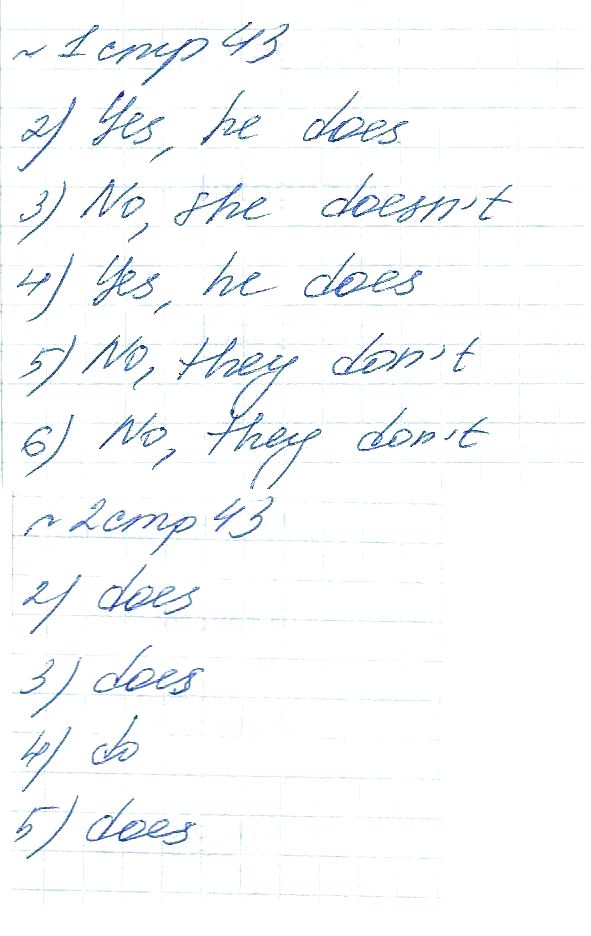 ~ 1 стр 43
2) Yes, he does
3) No, she doesn't
4) Yes, he does
5) No, they don't
6) No, they don't
~ 2 стр 43
2) does
3) does
4) do
5) does